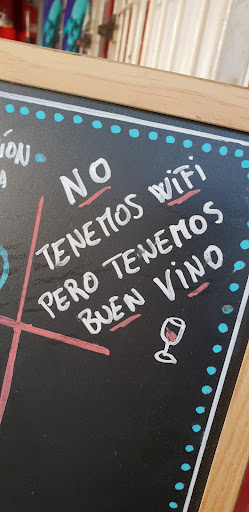 NO
TENEMOS WiFi
PERO TENEMOS
BUEN VINO